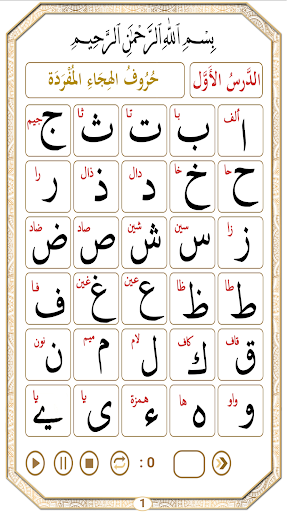 بِسْمِ ٱللَّهِ ٱلرَّحْمَٰنِ ٱلرَّحِيمِ
الدَّرسُ الأَوَّل حُرُوفُ الهِجَاءِ المُفْرَدَة
ألف با تا ثا جيم
ا ب ت ث ج
حا خا دال ذال را
ح خ د ذ ر
زا سين شين صاد ضاد
ز س ش ص ض
طا ظا عين غين فا
ط ظ ع غ ف
قاف كاف لام ميم نون
ق ك ل م ن
واو ها همزة يا يا
و ه ء ى ے
: 0
1